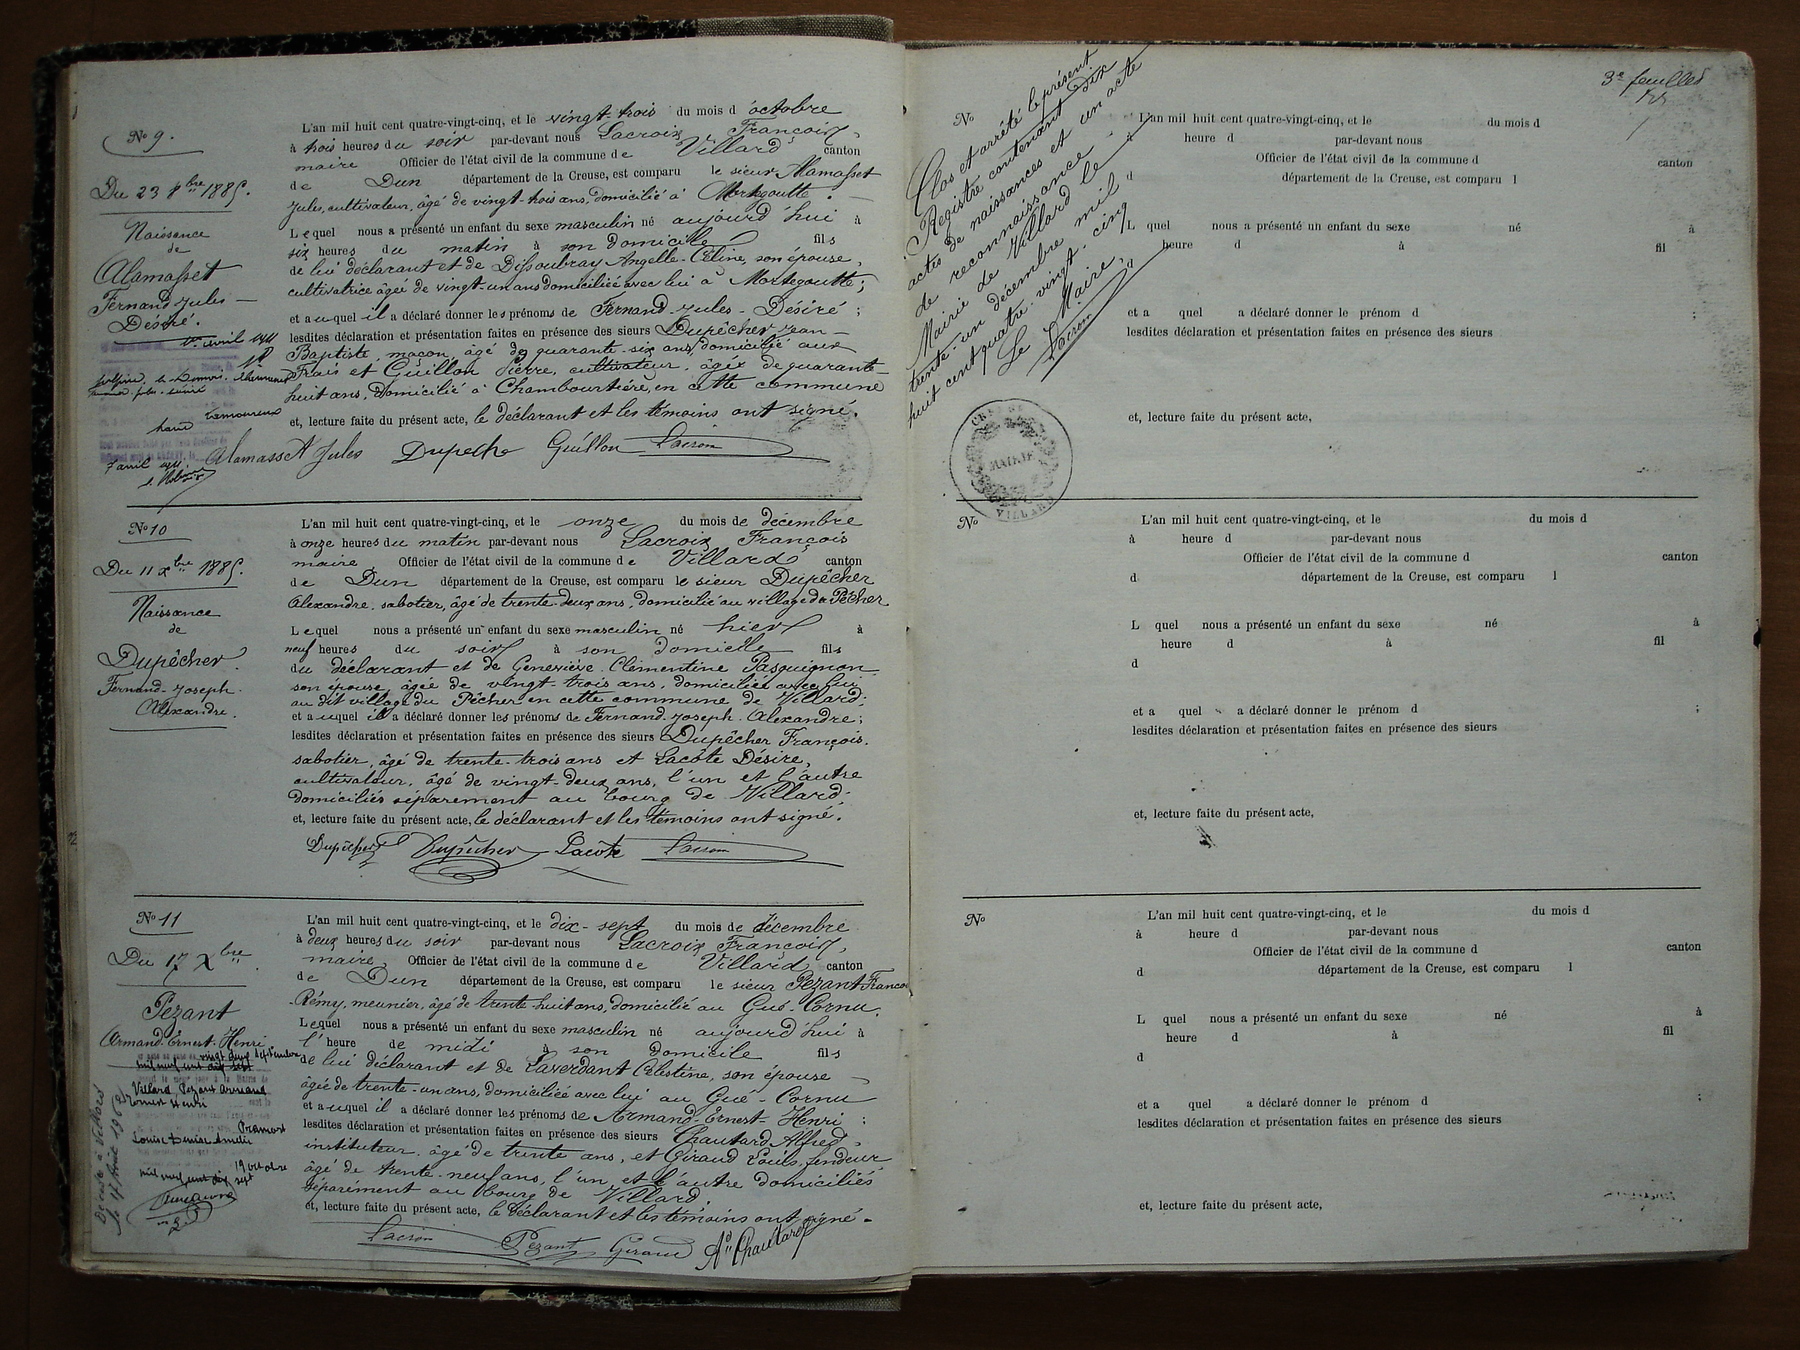 No 9.
Du 23 8bre 1885.
Naissance
de
Alamasset
Fernand-Jules-
Désiré.
L'an mil huit cent quatre-vingt-cinq, et le vingt-trois du mois d'octobre
à trois heures du soir par-devant nous Lacroix, François,
maire Officier de l'état civil de la commune de Villard canton
de Dun département de la Creuse, est comparu le sieur Alamasset
Jules, cultivateur, âgé de vingt-trois ans, domicilié à
Lequel nous a présenté un enfant du sexe masculin né aujourd'hui à
six heures du matin à son domicile fils
de lui déclarant et de Angelle-Céline, son épouse,
cultivatrice âgée de vingt-un ans domiciliée avec lui à Montegoutte;
et auquel il a déclaré donner les prénoms de Fernand-Jules-Désiré;
lesdites déclaration et présentation faites en présence des sieurs Dupêcher Jean-
Baptiste, maçon, âgé de quarante-six ans, domicilié aux
Frais et Guillon Pierre, cultivateur, âgé de quarante-
huit ans, domicilié à Chambourtière, en cette commune
et, lecture faite du présent acte, le déclarant et les témoins ont signé.
Alamasset Jules Dupeche Guillon Lacroix
No 10
Du 11 xbre 1885.
Naissance
de
Dupêcher
Fernand-Joseph-
Alexandre.
L'an mil huit cent quatre-vingt-cinq, et le onze du mois de décembre
à onze heures du matin par-devant nous Lacroix François
maire Officier de l'état civil de la commune de Villard canton
de Dun département de la Creuse, est comparu le sieur Dupêcher
Alexandre, sabotier, âgé de trente-deux ans, domicilié au village du Pêcher
Lequel nous a présenté un enfant du sexe masculin né hier à
neuf heures du soir à son domicile fils
du déclarant et de Geneviève-Clémentine Pasquignon
son épouse, âgée de vingt-trois ans, domiciliée avec lui
au dit village du Pêcher en cette commune de Villard;
et auquel il a déclaré donner les prénoms de Fernand-Joseph-Alexandre;
lesdites déclaration et présentation faites en présence des sieurs Dupêcher François,
sabotier, âgé de trente-trois ans et Lacôte Désiré,
cultivateur, âgé de vingt-deux ans, l'un et l'autre
domiciliés séparement au bourg de Villard;
et, lecture faite du présent acte, le déclarant et les témoins ont signé.
Dupêcher Dupêcher Lacôte Lacroix
No 11
Du 17 Xbre
Pezant
Armand-Ernest-Henri
L'an mil huit cent quatre-vingt-cinq, et le dix-sept du mois de décembre
à deux heures du soir par-devant nous Lacroix François,
maire, Officier de l'état civil de la commune de Villard, canton
de Dun département de la Creuse, est comparu le sieur Pezant
Rémy, meunier, âgé de trente-huit ans, domicilié au Gué-Cornu.
Lequel nous a présenté un enfant du sexe masculin né aujourd'hui à
l'heure de midi à son domicile fils
de lui déclarant et de Laverdant Célestine, son épouse
âgée de trente-un ans, domiciliée avec lui au Gué-Cornu
et auquel il a déclaré donner les prénoms de Armand-Ernest-Henri;
lesdites déclaration et présentation faites en présence des sieurs Chautard Alfred,
instituteur, âgé de trente ans, et Giraud Louis, fendeur
âgé de trente-neuf ans, l'un et l'autre domiciliés
séparément au bourg de Villard.
et, lecture faite du présent acte, le déclarant et les témoins ont signé.
Lacroix Pezant Giraud Ad Chautard
3e feuillet
Clos et arrêté le présent
Registre contenant dix
actes de naissances et un acte
de reconnaissance
Mairie de Villard le
trente-un décembre mil
huit cent quatre-vingt-cinq
Le Maire,
Lacroix
MAIRIE
VILLARD
No
L'an mil huit cent quatre-vingt-cinq, et le du mois d
heure d par-devant nous
Officier de l'état civil de la commune d canton
département de la Creuse, est comparu l
L quel nous a présenté un enfant du sexe né à
heure d à fil
et a quel a déclaré donner le prénom d ;
lesdites déclaration et présentation faites en présence des sieurs
et, lecture faite du présent acte,
No
L'an mil huit cent quatre-vingt-cinq, et le du mois d
à heure d par-devant nous
Officier de l'état civil de la commune d canton
d département de la Creuse, est comparu l
L quel nous a présenté un enfant du sexe né à
heure d à fil
d
et a quel a déclaré donner le prénom d ;
lesdites déclaration et présentation faites en présence des sieurs
et, lecture faite du présent acte,
No
L'an mil huit cent quatre-vingt-cinq, et le du mois d
à heure d par-devant nous
Officier de l'état civil de la commune d canton
d département de la Creuse, est comparu l
L quel nous a présenté un enfant du sexe né à
heure d à fil
d
et a quel a déclaré donner le prénom d ;
lesdites déclaration et présentation faites en présence des sieurs
et, lecture faite du présent acte,